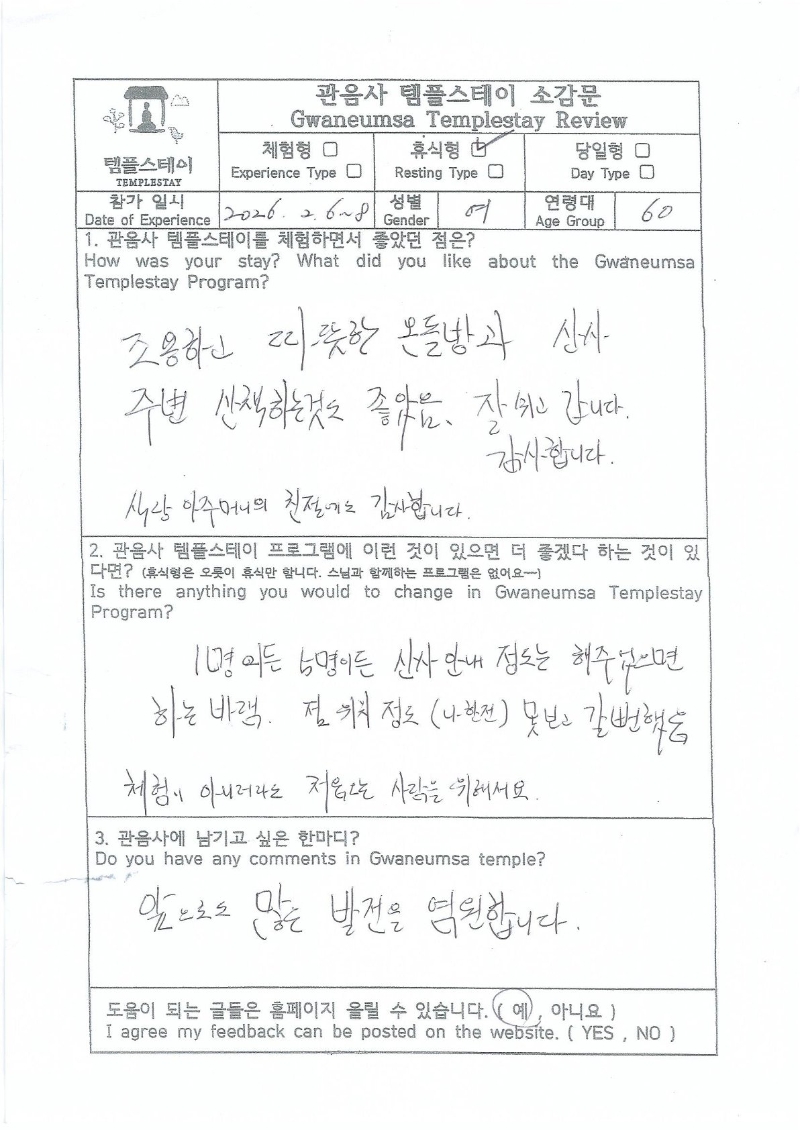 관음사 템플스테이 소감문
Gwaneumsa Templestay Review
템플스테이
TEMPLESTAY
체험형 □
Experience Type □
휴식형 ☑
Resting Type □
당일형 □
Day Type □
참가 일시
Date of Experience
2026. 2. 6~8
성별
Gender
여
연령대
Age Group
60
1. 관음사 템플스테이를 체험하면서 좋았던 점은?
How was your stay? What did you like about the Gwaneumsa
Templestay Program?
조용하고 따뜻한 온돌방과 산사
주변 산책하는것도 좋았음. 잘 쉬고 갑니다.
감사합니다.
아주머니의 친절에도 감사합니다.
2. 관음사 템플스테이 프로그램에 이런 것이 있으면 더 좋겠다 하는 것이 있
다면? (휴식형은 오롯이 휴식만 합니다. 스님과 함께하는 프로그램은 없어요~~)
Is there anything you would to change in Gwaneumsa Templestay
Program?
1명이든 5명이든 산사 안내 정도는 해주었으면
하는 바램. 위치 정도 (나한전) 못보고 갈뻔했음
체험이 아니더라도 처음오는 사람을 위해서요.
3. 관음사에 남기고 싶은 한마디?
Do you have any comments in Gwaneumsa temple?
앞으로도 많은 발전을 염원합니다.
도움이 되는 글들은 홈페이지 올릴 수 있습니다. ( 예 , 아니요 )
I agree my feedback can be posted on the website. ( YES , NO )